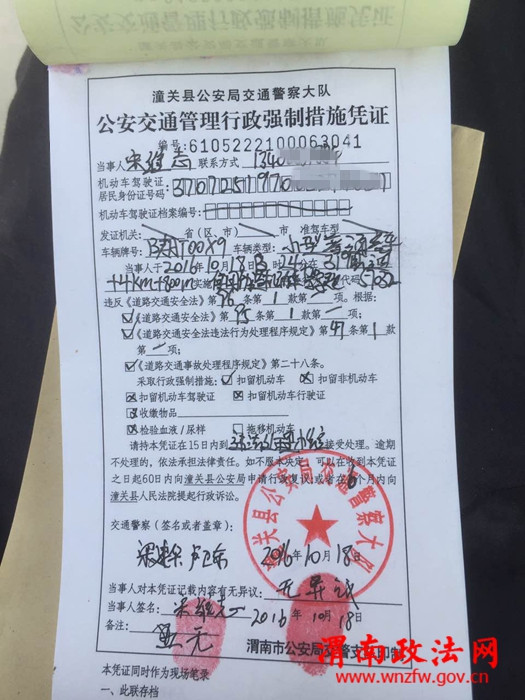 潼关县公安局交通警察大队
公安交通管理行政强制措施凭证
编号:6105222100063041
当事人 宋维志 联系方式 1340
机动车驾驶证
居民身份证号码 3707251970
机动车驾驶证档案编号:
发证机关: 省(区、市) 市 准驾车型
车辆牌号: 陕AT00X9 车辆类型: 小型普通客车
当事人于2016年10月18日 时24分在310国道
+4km+800m实施 代码
违反《道路交通安全法》第 条第1款第一项。根据:
☑《道路交通安全法》第95条第1款第一项;
☑《道路交通安全违法行为处理程序规定》第 条第1款
第一项;
☑《道路交通事故处理程序规定》第二十八条。
采取行政强制措施:☑扣留机动车 ☒扣留非机动车
☒扣留机动车驾驶证 ☒扣留机动车行驶证
☒收缴物品
☒检验血液/尿样 □拖移机动车
请持本凭证在15日内到 接受处理。逾期
不处理的,依法承担法律责任。如不服本决定,可以在收到本凭证
之日起60日内向潼关县公安局申请行政复议;或者在6个月内向
潼关县人民法院提起行政诉讼。
交通警察(签名或者盖章):
2016年10月18日
潼关县公安局交通警察大队
当事人对本凭证记载内容有无异议: 无异议
当事人签名: 宋维志 2016年10月18日
备注: 无
渭南市公安局交警支队印制
本凭证同时作为现场笔录
一、此联存档
渭南政法网
www.wnzfw.gov.cn